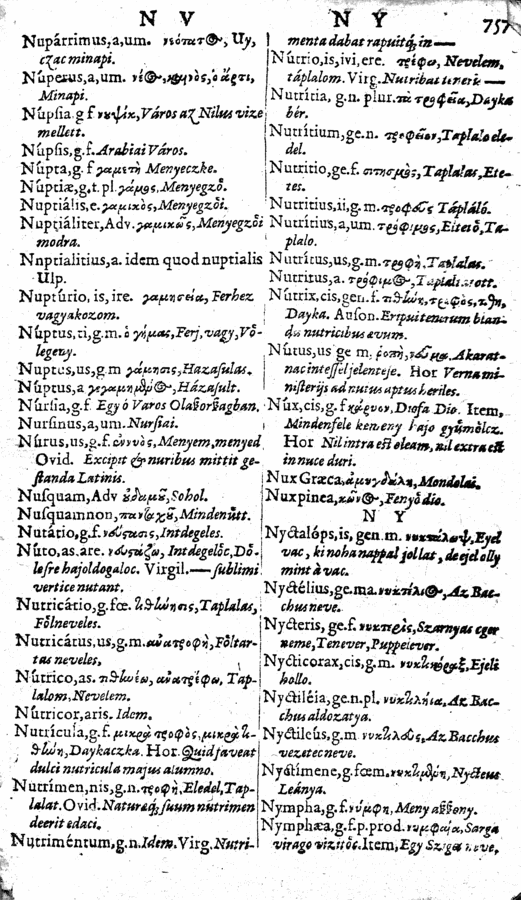 N V
N Y
757
Nupárrimus, a, um. νεότατ@, Uy,
czac minapi.
Núperus, a, um. νέ@, ὁ ἄρτι,
Minapi.
Núpsia, g. f Város az Nilus vize
mellett.
Núpsis, g. f. Arabiai Város.
Núpta, g. f γαμετὴ Menyeczke.
Núptiæ, g. t. pl. γάμος, Menyegzö.
Nuptiális, e. γαμικὸς, Menyegzöi.
Nuptiáliter, Adv. γαμικῶς, Menyegzöi
modra.
Nnptialitius, a. idem quod nuptialis
Ulp.
Nuptúrio, is, ire. γαμησεία, Ferhez
vagyakozom.
Núptus, ti, g. m. ὁ γήμας, Ferj, vagy, Vö-
legeny.
Nuptus, us, g. m γάμησις, Hazasulas.
Núptus, a Házasult.
Núrsia, g. f. Egy ó Varos Olaßorßagban.
Nursinus, a, um. Nursiai.
Núrus, us, g. f. Menyem, menyed
Ovid. Excipit & nuribus mittit ge-
standa Latinis.
Nusquam, Adv ἐδαμοῦ, Sohol.
Nusquamnon, πανταχοῦ, Mindenütt.
Nutátio, g. f. νεύστασις, Intdegeles.
Núto, as. are. νευστάζω, Intdegelöc, Dö-
lesre hajoldogaloc. Virgil. — sublimi
vertice nutant.
Nutricátio, g. fœ. Taplalas,
Fölneveles.
Nutricátus, us, g. m. ἀνατροφὴ, Föltar-
tas neveles,
Nutrico, as. ἀνατρέφω, Tap-
lalom, Nevelem.
Nútricor, aris. Idem.
Nutrícula, g. f. μικρὰ τροφὸς, μικρὰ τι-
θήνη, Daykaczka. Hor. Quid faveat
dulci nutricula majus alumno.
Nutrímen, nis, g. n. τροφὴ, Eledel, Tap-
lalat. Ovid. Natureq́; suum nutrimen
deerit edaci.
Nutriméntum, g. n. Idem. Virg. Nutri-
menta dabat rapuitq́; in —
Nútrio, is, ivi, ere. τρέφω, Nevelem,
táplalom. Virg. Nutribat —
Nutrítia, g. n. plur. τὰ τροφεῖα, Dayka
bér.
Nutrítium, ge. n. τροφεῖον, Taplalo ele-
del.
Nutrítio, ge. f. σιτισμὸς, Taplalas, Ete-
tes.
Nutrítius, ii, g. m. τροφεὺς Tápláló.
Nutrítius, a, um. τρόφιμος, Eitetö, Ta-
plalo.
Nutrítus, us, g. m. τροφὴ, Taplalas.
Nutritus, a. τρόφιμ@,
Nútrix, cis, gen. f. τιθήνη, τροφὸς,
Dayka. Auson. Eripuit blan-
dis nutricibus ævum.
Nútus, us ge m. ῥοπὴ, νεῦμα. Akarat-
nac intessel jelenteje. Hor Verna mi-
nisterijs ad nutus aptus heriles.
Nux, cis, g. f κάρυον, Diofa Dio. Item,
Mindenfele kemeny hajo gyümölcz.
Hor Nil intra est oleam, nil extra est
in nuce duri.
Nux Græca, ἀμυγδάλη, Mondolai.
Nuxpinea, κῶν@, Fenyö dio.
N Y
Nyctalóps, is, gen. m. νυκτάλωψ, Eyel
vac, ki noha nappal jol lat, de ejel olly
mint à vac.
Nyctélius, ge. ma. Az Bac-
chus neve.
Nycteris, ge. f. νυκτερὶς, Szarnyas eger
neme, Tenever, Puppetever.
Nycticorax, cis, g. m. νυκτικόραξ, Ejeli
hollo.
Nyctiléia, ge. n. pl. νυκτιλήια, Az Bac-
chus aldozatya.
Nyctileús, g. m Az Bacchus
vezetec neve.
Nyctímene, g. fœm. Nycteus
Leánya.
Nympha, g. f. νύμφη, Meny aßßony.
Nymphæa, g. f. p. prod. νυμφαία, Sarga
virago vizitöc. Item, Egy Sziget neve,